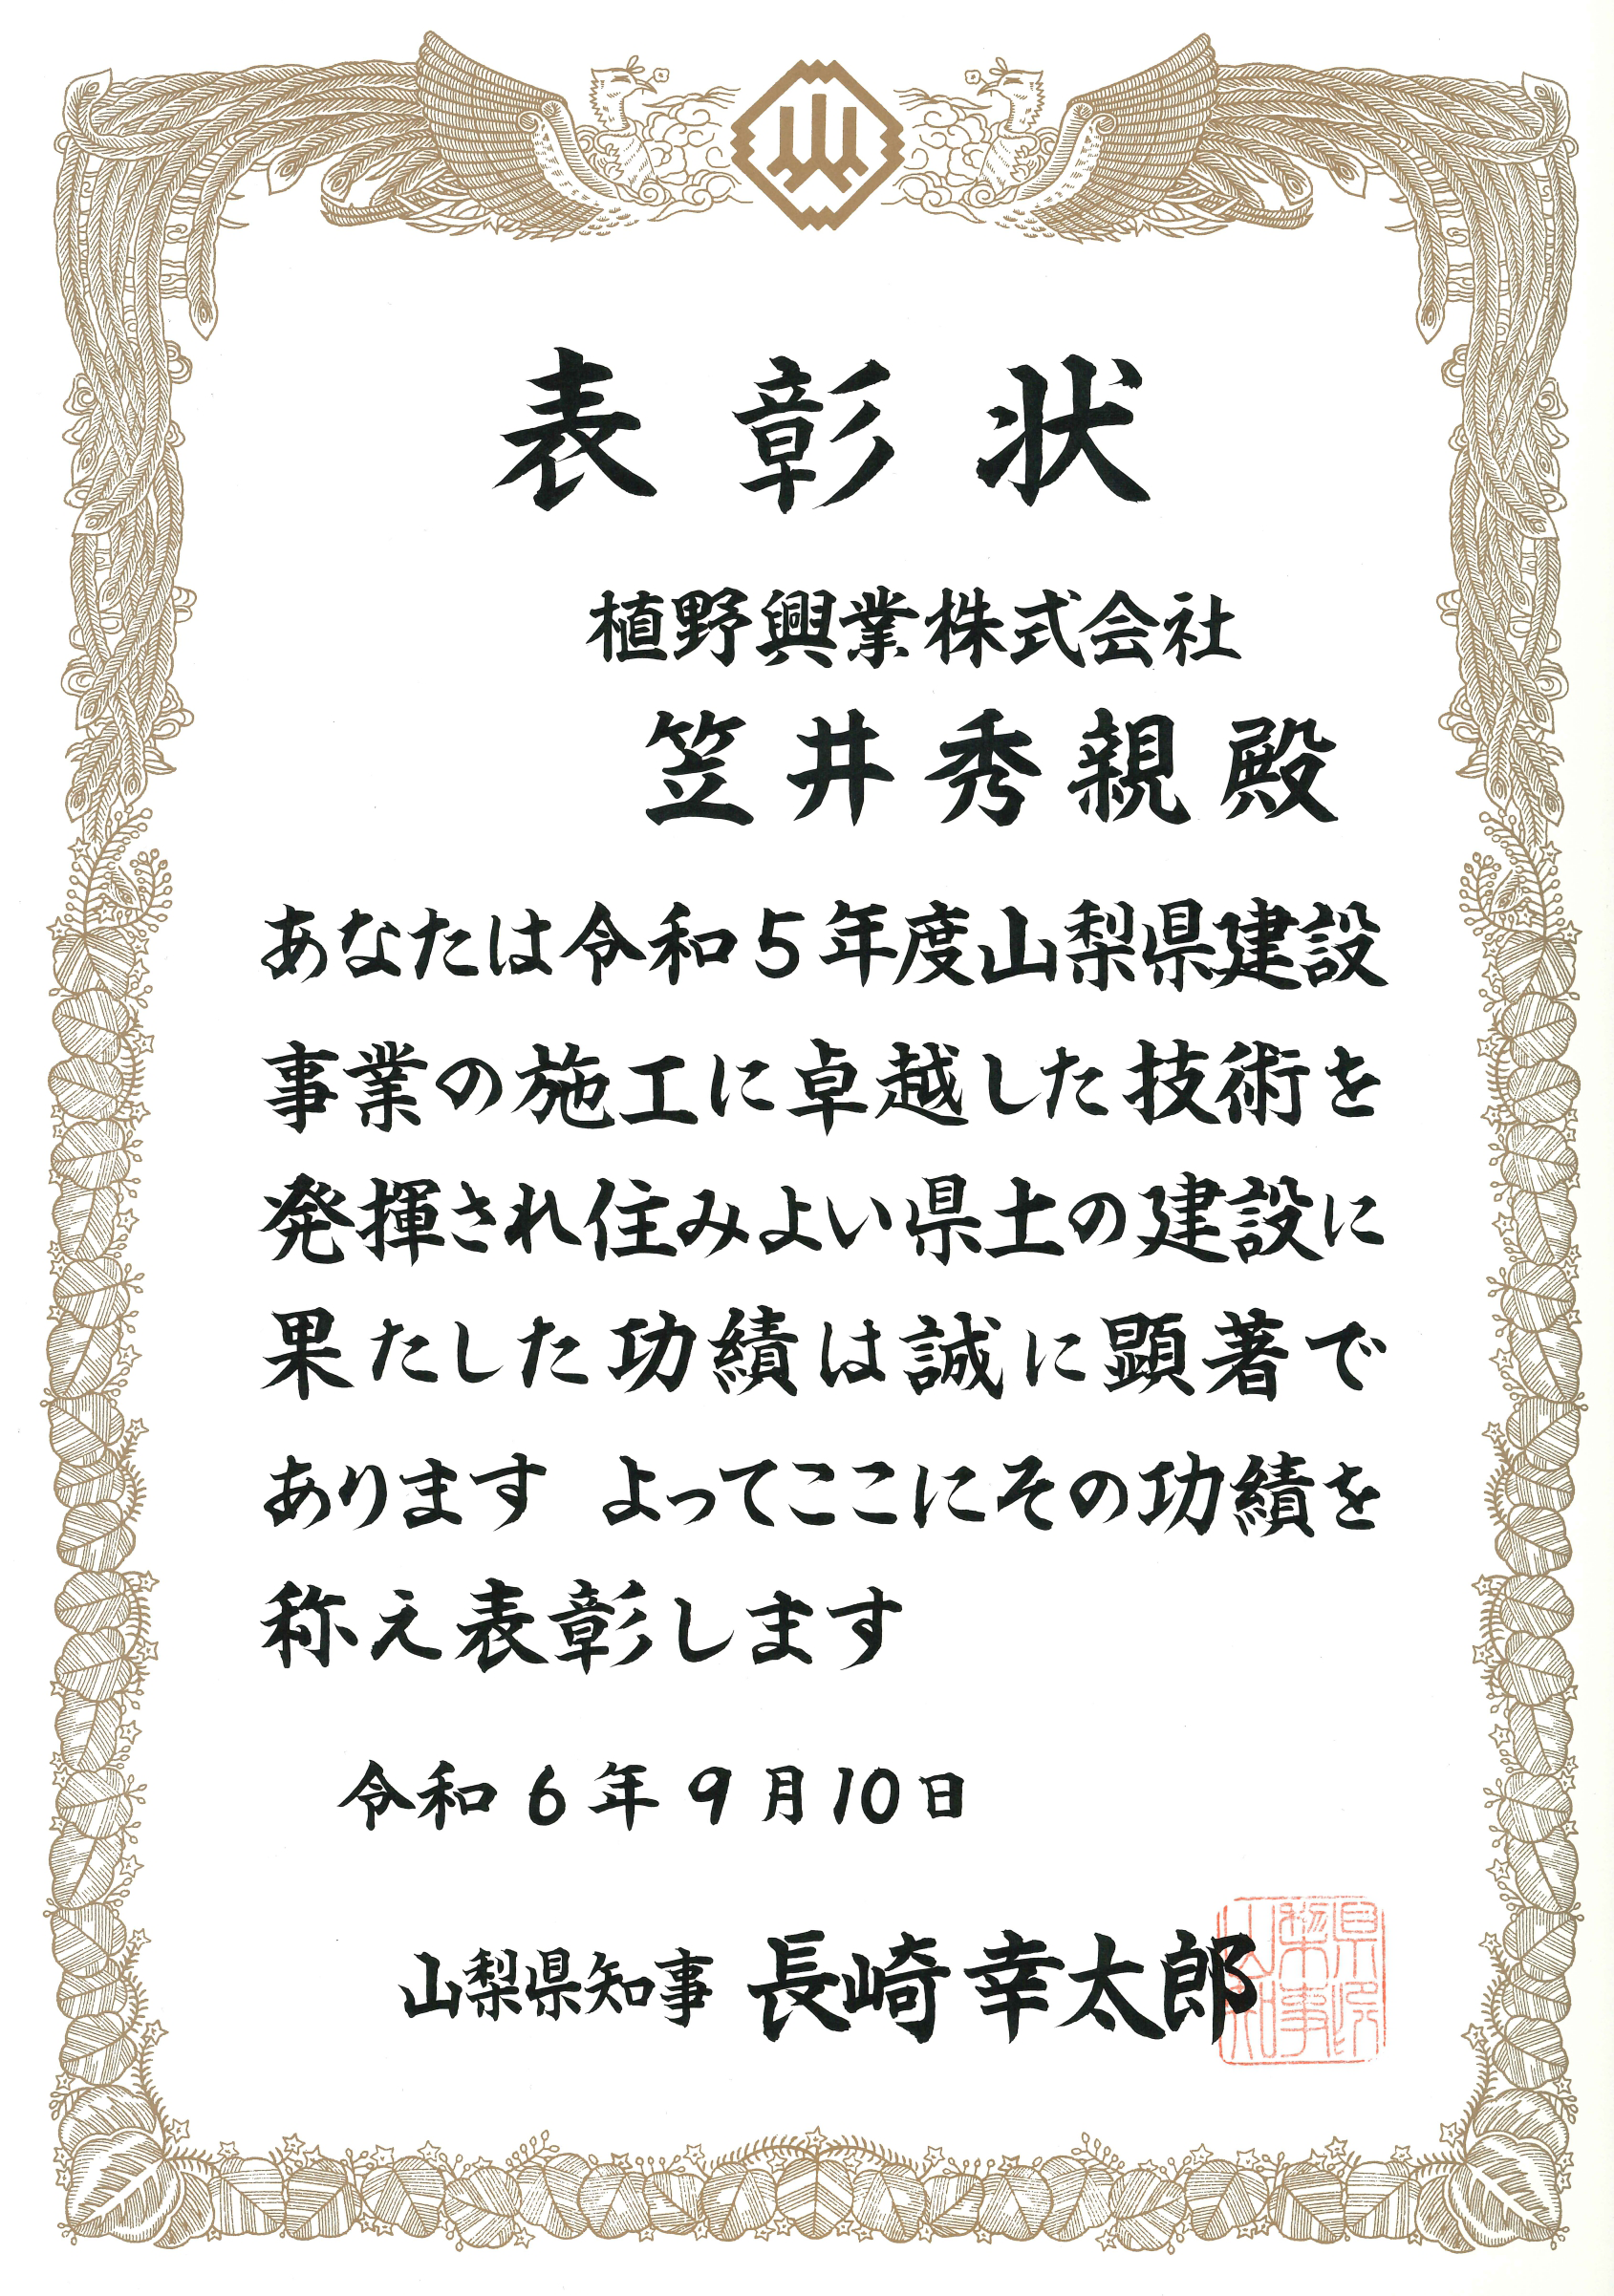 表彰状
植野興業株式会社
笠井秀親殿
あなたは令和5年度山梨県建設
事業の施工に卓越した技術を
発揮され住みよい県土の建設に
果たした功績は誠に顕著で
あります よってここにその功績を
称え表彰します
令和6年9月10日
山梨県知事 長崎幸太郎